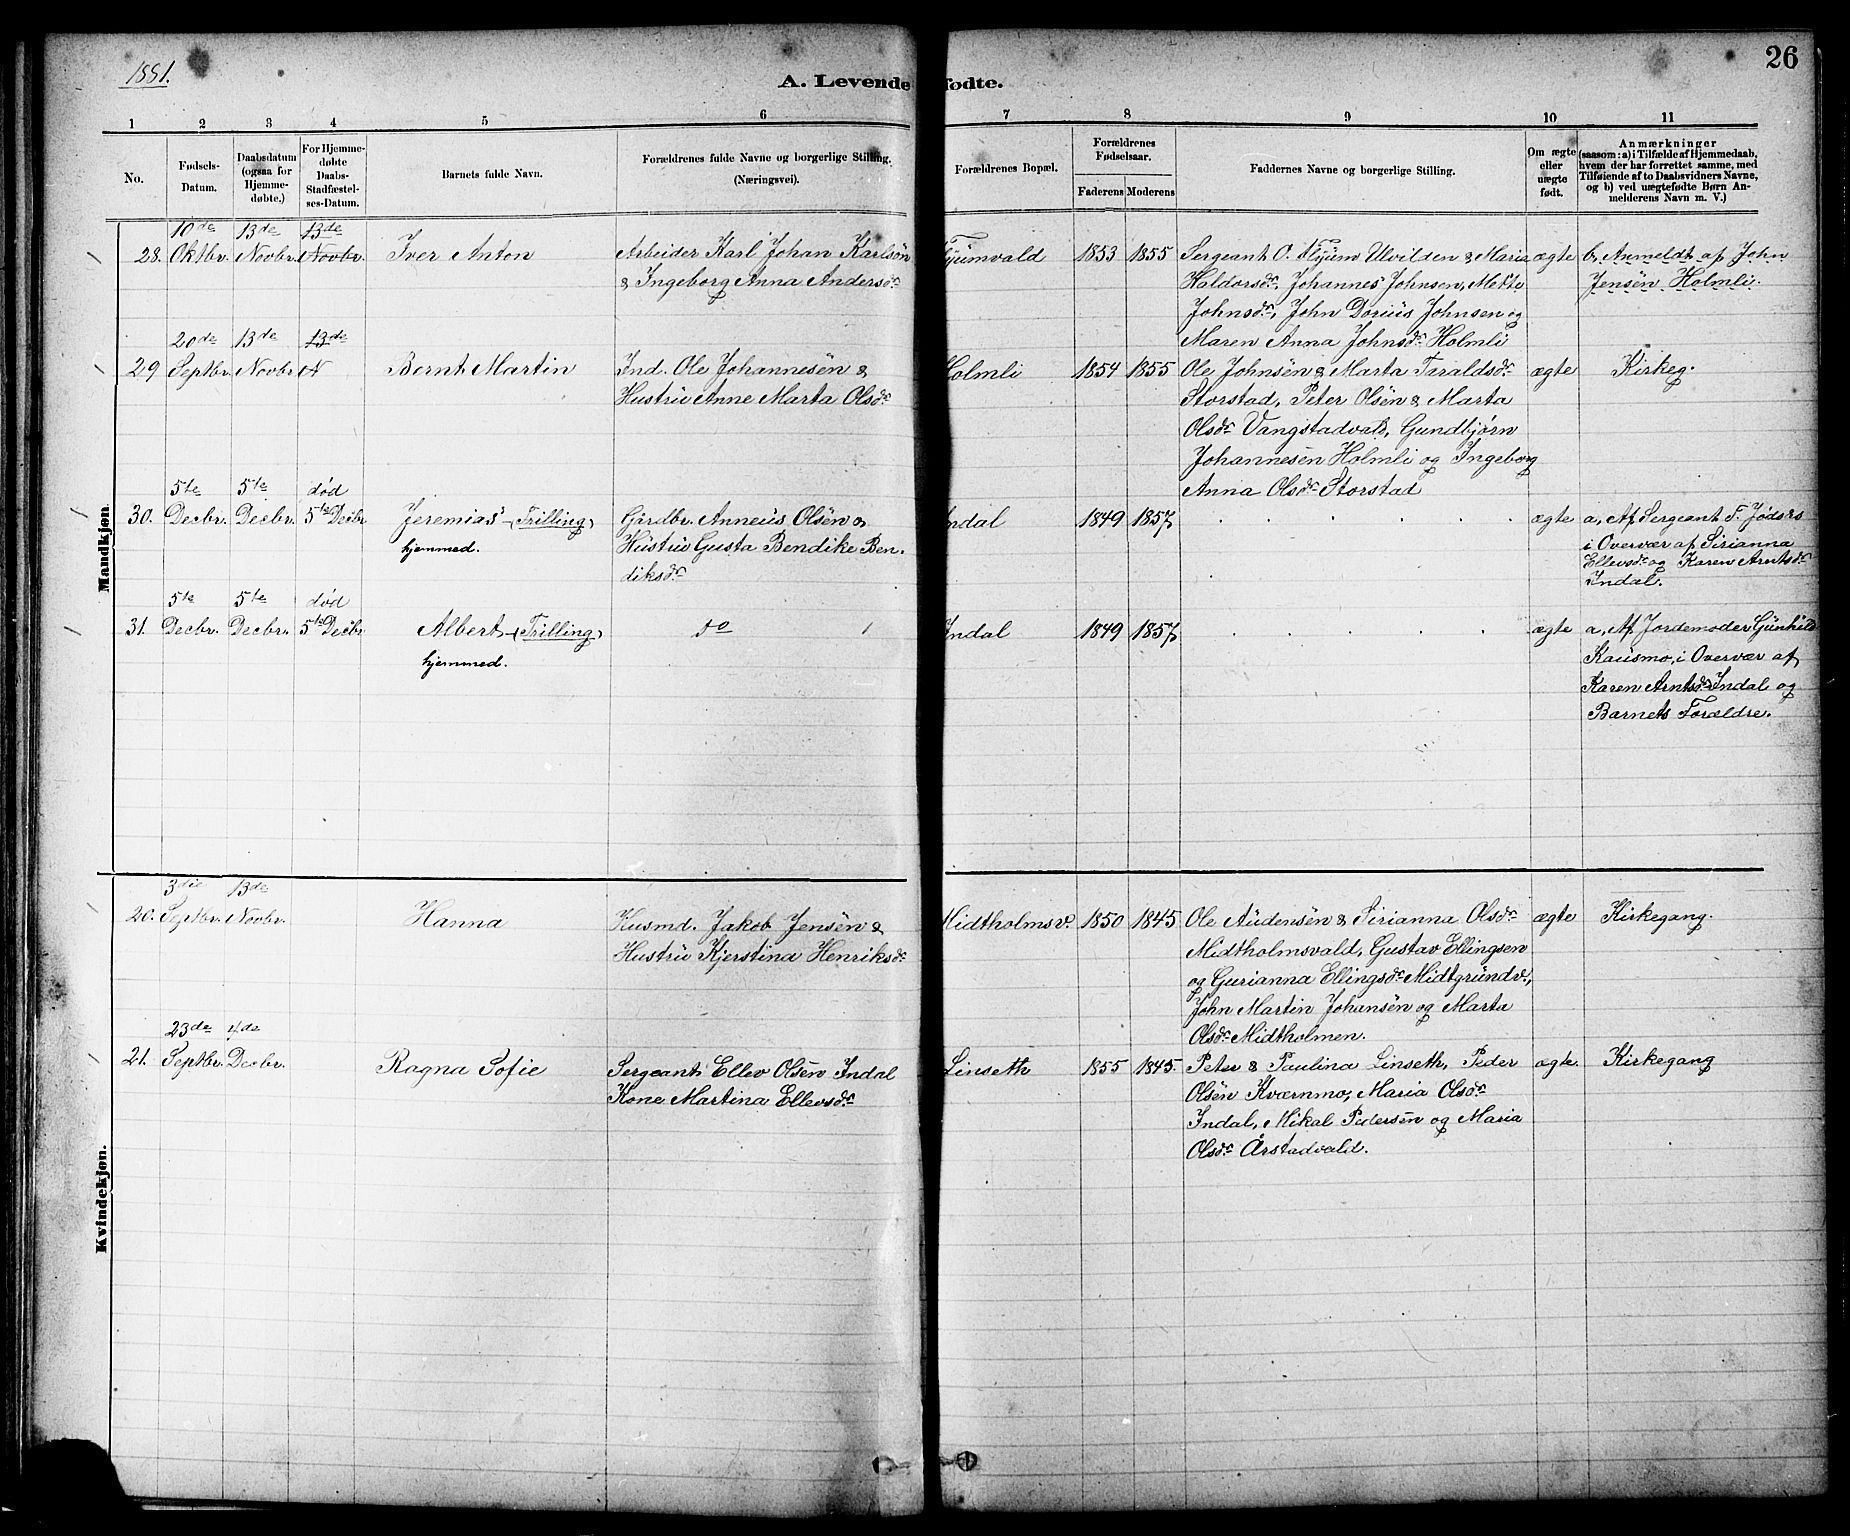 1881.
26
A. Levende fødte.
1 2 3 4 5 6 7 8 9 10 11
No.
Fødsels-
Datum.
Daabsdatum
(ogsaa for
Hjemme-
døbte.)
For Hjemme-
døbte
Daabs-
Stadfæstel-
ses-Datum.
Barnets fulde Navn.
Forældrenes fulde Navne og borgerlige Stilling.
(Næringsvei).
Forældrenes Bopæl.
Forældrenes
Fødselsaar.
Faderens Moderens
Faddernes Navne og borgerlige Stilling.
Om ægte
eller
uægte
født.
Anmærkninger
(saasom: a) i Tilfælde af Hjemmedaab,
hvem der har forrettet samme, med
Tilføiende af to Daabsvidners Navne,
og b) ved uægtefødte Børn An-
melderens Navn m. V.)
Mandkjøn.
10de 13de 13de
28. Oktbr. Novbr. Novbr. Iver Anton Arbeider Karl Johan Karlsön Flyumvald 1853 1855 Sergeant O. Flyum Ulvilden & Maria ægte b, Anmeldt af John
& Ingeborg Anna Andersdr Haldorsdr, Johannes Johnsen, Mette Jensén Holmli.
Johnsdr, John Dorius Johnsen og
Maren Anna Johnsdr Holmli
20de 13de 13de
29 Septbr. Novbr. N Bernt Martin Ind. Ole Johannesén & Holmli 1854 1855 Ole Johnsén & Marta Taraldsdr ægte Kirkeg.
Hustru Anne Marta Olsdr Storstad, Peter Olsén & Marta
Olsdr Vangstadvald, Gundbjørn
Johannesén Holmli og Ingeborg
Anna Olsdr Storstad
5te 5te død
30. Decbr. Decbr. 5te Decbr Jeremias (Trilling) Gårdbr. Anneus Olsén og Indal 1849 1857 . . . . . ægte a, Af Sergeant F. Jøders
hjemmed. Hustru Gusta Bendike Ben- i Overvær af Sirianna
diksdr Ellevsdr og Karen Arntsdr
Indal.
5te 5te død
31. Decbr. Decbr. 5te Decbr Albert (Trilling) do Indal 1849 1857 . . . . . ægte a, Af Jordemoder Gunhild
hjemmed. Kausmo, i Overvær af
Karen Arntsdr Indal og
Barnets Forældre.
Kvindekjøn.
3die 13de
20. Septbr. Novbr. Hanna Husmd. Jakob Jensén & Midtholmsv. 1850 1845 Ole Audensén & Sirianna Olsdr ægte Kirkegang.
Hustru Kjerstina Henriksdr Midtholmsvald, Gustav Ellingsen
og Gurianna Ellingsdr Midtgrundv.,
John Martin Johansén og Marta
Olsdr Midtholmen.
23de 4de
21. Septbr. Decbr. Ragna Sofie Sergeant Ellev Olsén Indal Linseth 1855 1845. Peter & Paulina Linseth, Peder ægte. Kirkegang
Kone Martina Ellevsdr Olsén Kværnmo, Maria Olsdr
Indal, Mikal Pedersén og Maria
Olsdr Årstadvald.